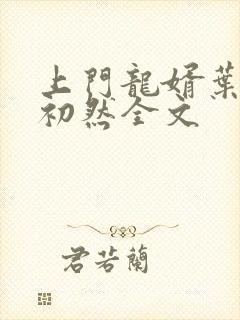 上門龍婿葉
初然全文
君若蘭